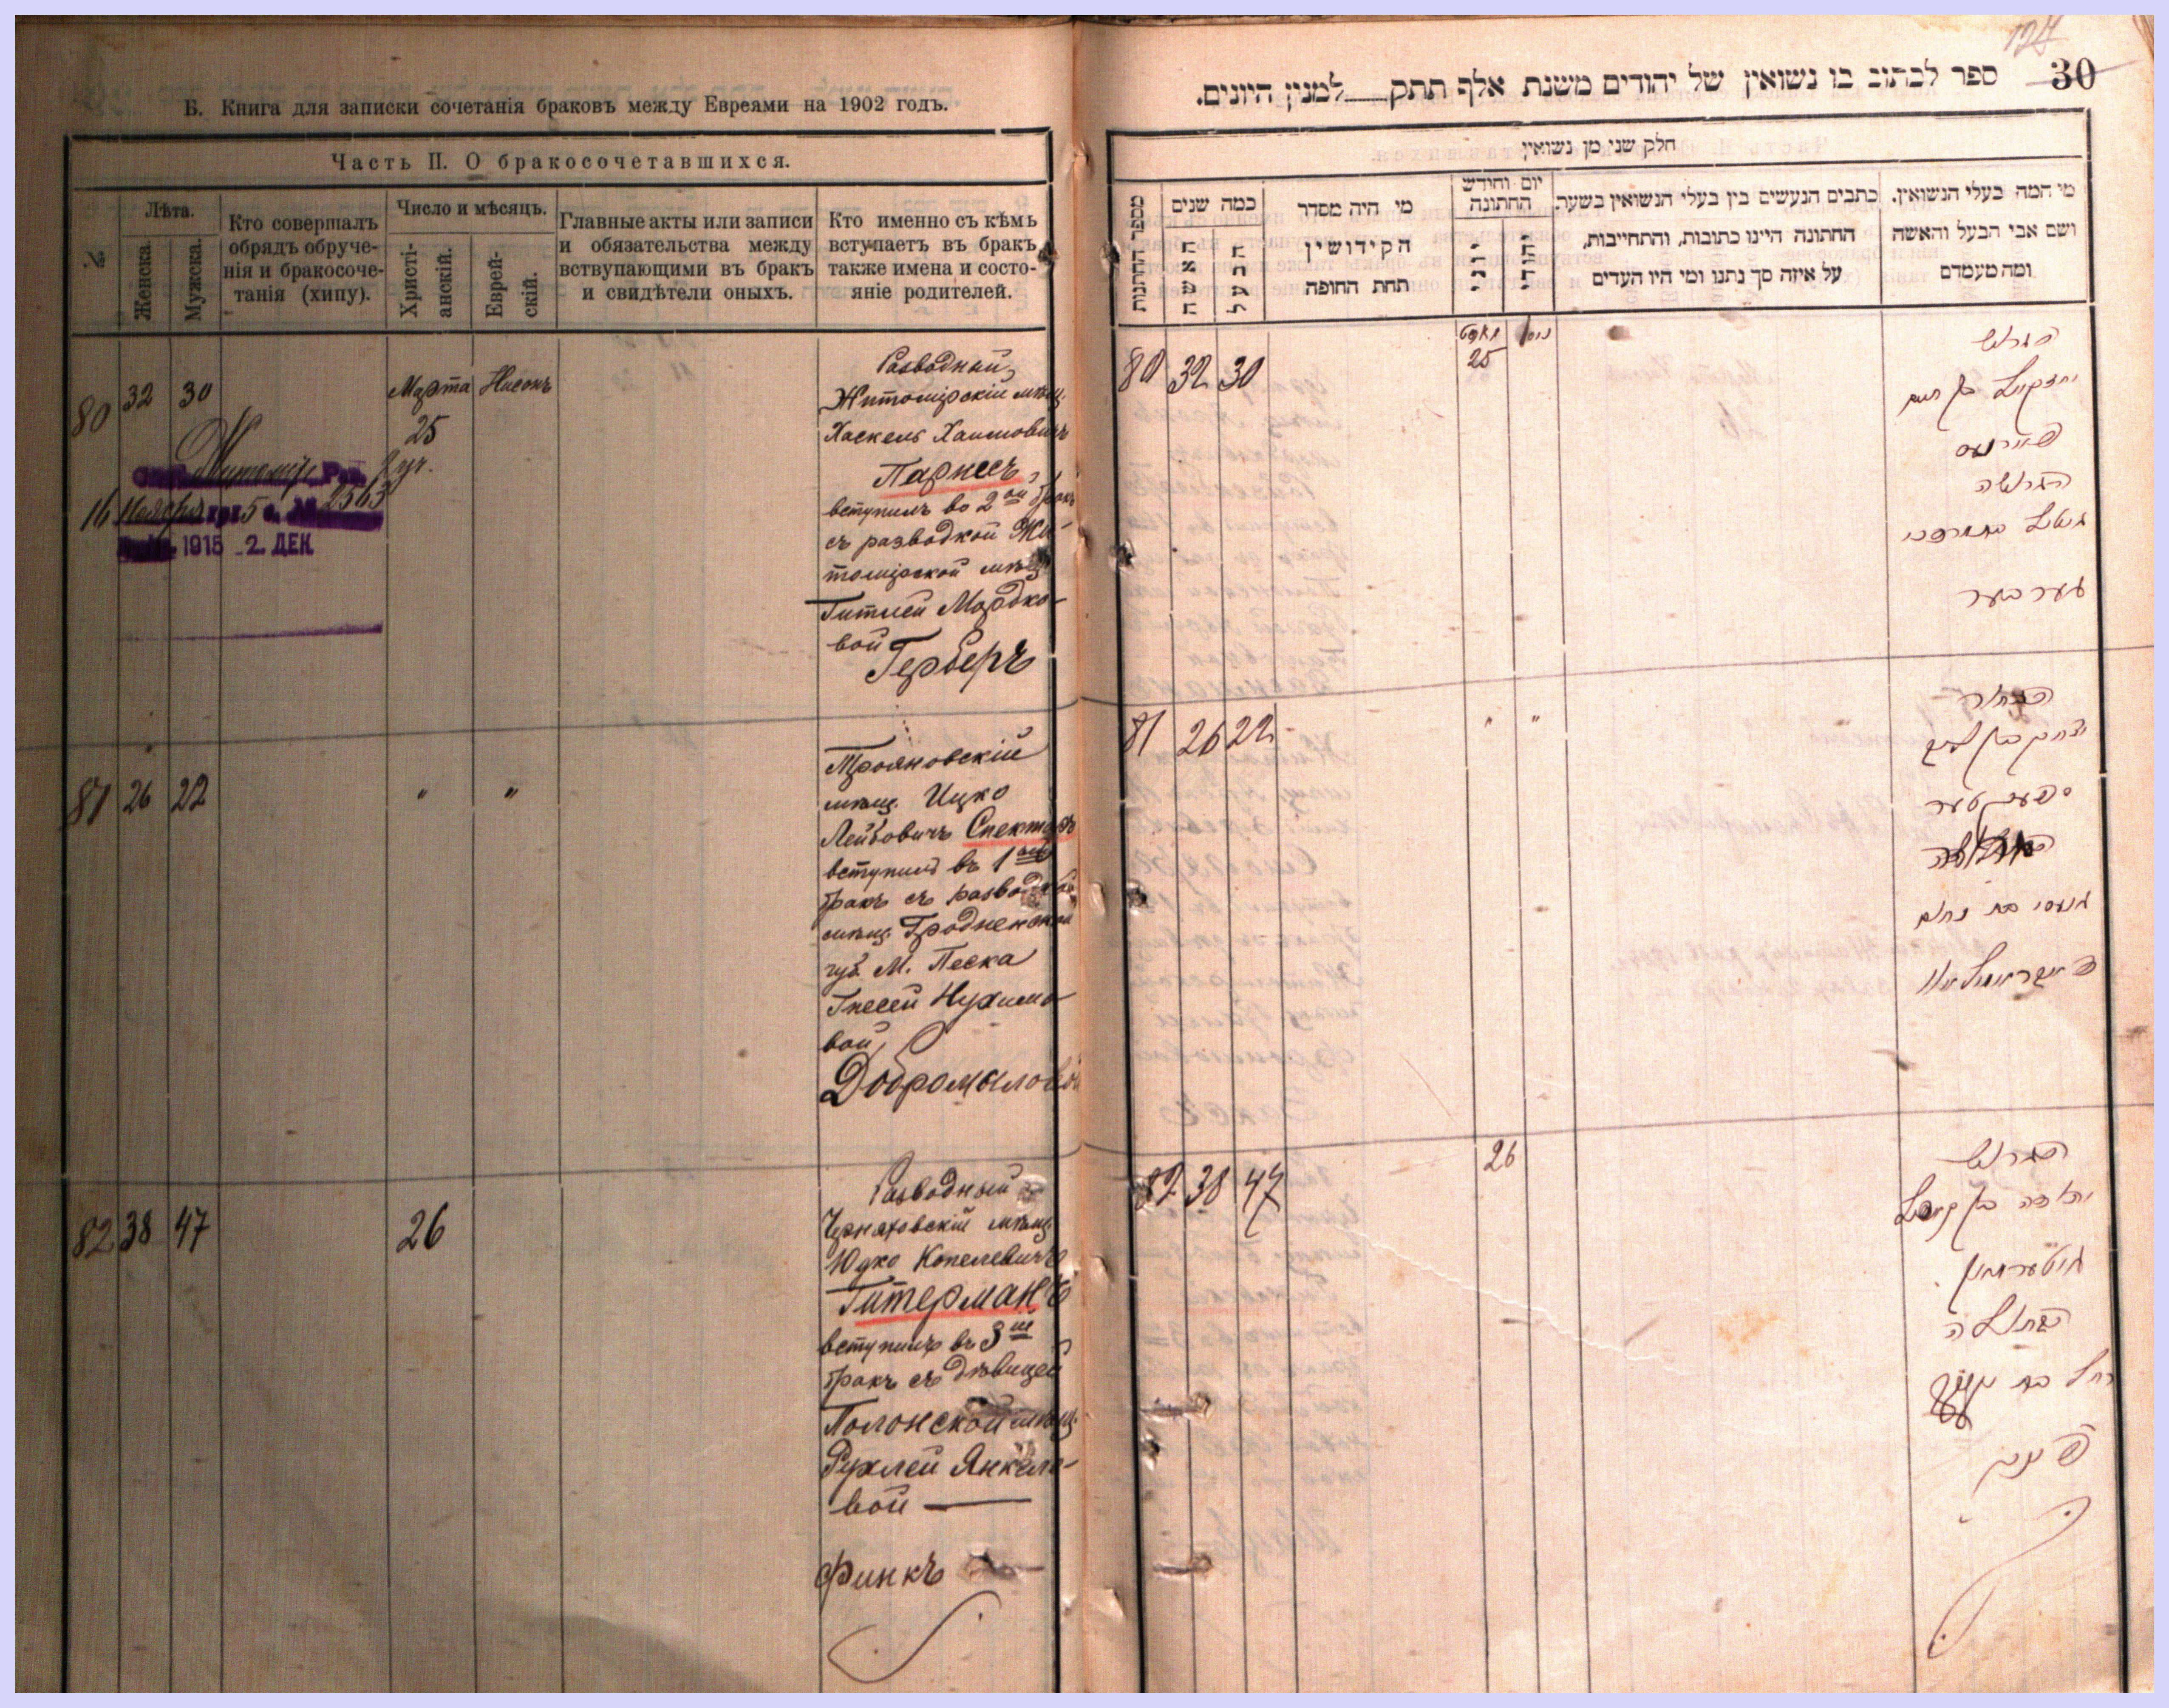 Б. Книга для записки сочетанія браковъ между Евреями на 1902 годъ.
Часть II. О бракосочетавшихся.
№
Лѣта.
Женска.
Мужска.
Кто совершалъ
обрядъ обруче-
нія и бракосоче-
танія (хипу).
Число и мѣсяцъ.
Христі-
анскій.
Еврей-
скій.
Главные акты или записи
и обязательства между
вствупающими въ бракъ
и свидѣтели оныхъ.
Кто именно съ кѣмъ
вступаетъ въ бракъ,
также имена и состо-
яніе родителей.
80 32 30 Марта Нисонъ
25
1915 2. ДЕК
2563
Разводный
Житомірскій мѣщ.
Хаскель Хаимовичъ
Парнесъ
вступилъ во 2ой бракъ
съ разводкой Жи-
томірской мѣщ.
Гитлей Мордко-
вой
Герберъ
81 26 22 " "
Трояновскій
мѣщ. Ицко
Лейбовичъ Спекторъ
вступилъ въ 1ый
бракъ съ разводкой
мѣщ. Гродненской
губ. М. Песка
Гнесей Нухимо-
вой
Добромысловой
82 38 47 26
Разводный
Черняховскій мѣщ.
Юдко Копелевичъ
Гитерманъ
вступилъ въ 3ій
бракъ съ дѣвицей
Полонской мѣщ.
Рухлей Янкеле-
вой
Финкъ
124
30
ספר לכתוב בו נשואין של יהודים משנת אלף תתק למנין היונים.
חלק שני מן נשואין
מספר החתנות
כמה שנים
האשה
הבעל
מי היה מסדר
הקידושין
תחת החופה
יום וחודש
החתונה
יוני
יהודי
כתבים הנעשים בין בעלי הנשואין בשער
החתונה היינו כתובות, והתחייבות,
על איזה סך נתנו ומי היו העדים
מי המה בעלי הנשואין.
ושם אבי הבעל והאשה
ומה מעמדם
80 32 30 25
הגרוש
יחזקאל בן חיים
פארנעס
הגרושה
גיטל בת מרדכי
גערבער
81 26 22 " "
הבחור
יצחק בן לייב
ספעקטער
גנעסי בת נחום
82 38 47 26
הגרוש
יהודה בן קאפל
גיטערמאן
הבתולה
רחל בת
פינק